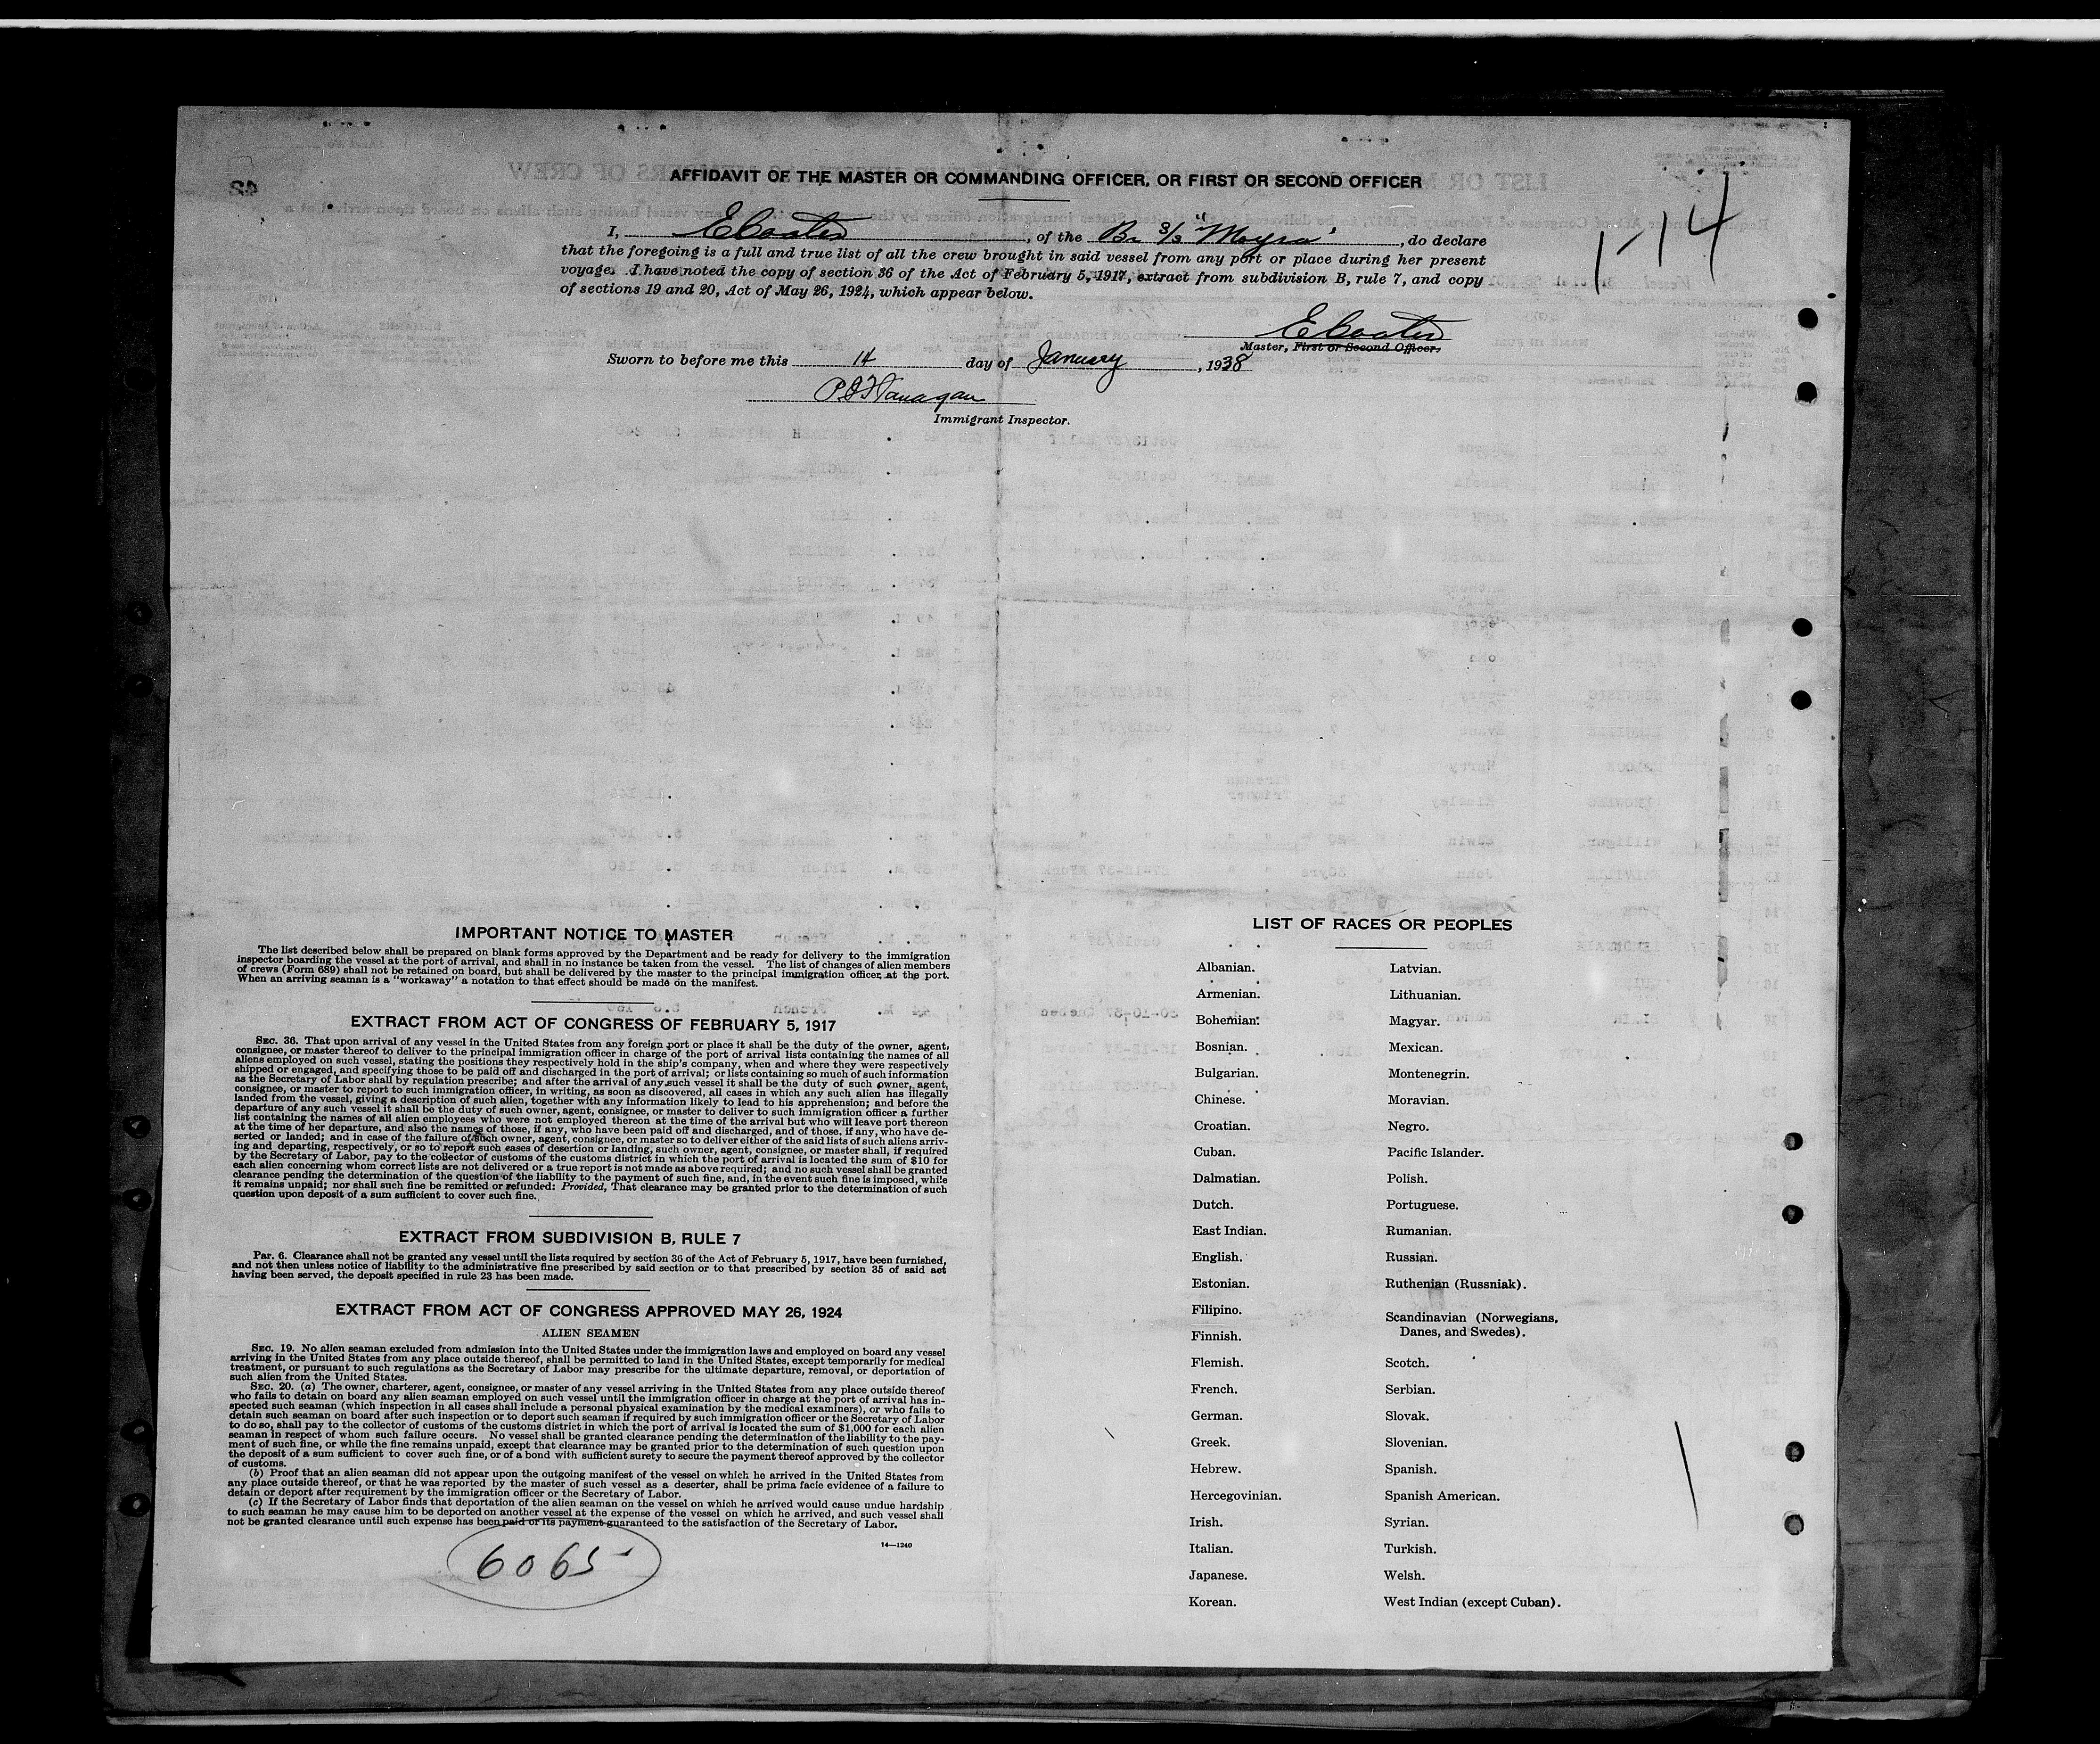 AFFIDAVIT OF THE MASTER OR COMMANDING OFFICER, OR FIRST OR SECOND OFFICER
1-14
I, E Coates, of the Br S/S "Moyra", do declare
that the foregoing is a full and true list of all the crew brought in said vessel from any port or place during her present
voyage. I have noted the copy of section 36 of the Act of February 5, 1917, extract from subdivision B, rule 7, and copy
of sections 19 and 20, Act of May 26, 1924, which appear below.
E Coates
Master, First or Second Officer.
Sworn to before me this 14 day of January, 1938
P J Flanagan
Immigrant Inspector.
IMPORTANT NOTICE TO MASTER
The list described below shall be prepared on blank forms approved by the Department and be ready for delivery to the immigration
inspector boarding the vessel at the port of arrival, and shall in no instance be taken from the vessel. The list of changes of alien members
of crews (Form 689) shall not be retained on board, but shall be delivered by the master to the principal immigration officer at the port.
When an arriving seaman is a "workaway" a notation to that effect should be made on the manifest.
EXTRACT FROM ACT OF CONGRESS OF FEBRUARY 5, 1917
SEC. 36. That upon arrival of any vessel in the United States from any foreign port or place it shall be the duty of the owner, agent,
consignee, or master thereof to deliver to the principal immigration officer in charge of the port of arrival lists containing the names of all
aliens employed on such vessel, stating the positions they respectively hold in the ship's company, when and where they were respectively
shipped or engaged, and specifying those to be paid off and discharged in the port of arrival; or lists containing so much of such information
as the Secretary of Labor shall by regulation prescribe; and after the arrival of any such vessel it shall be the duty of such owner, agent,
consignee, or master to report to such immigration officer, in writing, as soon as discovered, all cases in which any such alien has illegally
landed from the vessel, giving a description of such alien, together with any information likely to lead to his apprehension; and before the
departure of any such vessel it shall be the duty of such owner, agent, consignee, or master to deliver to such immigration officer a further
list containing the names of all alien employees who were not employed thereon at the time of the arrival but who will leave port thereon
at the time of her departure, and also the names of those, if any, who have been paid off and discharged, and of those, if any, who have de-
serted or landed; and in case of the failure of such owner, agent, consignee, or master so to deliver either of the said lists of such aliens arriv-
ing and departing, respectively, or so to report such cases of desertion or landing, such owner, agent, consignee, or master shall, if required
by the Secretary of Labor, pay to the collector of customs of the customs district in which the port of arrival is located the sum of $10 for
each alien concerning whom correct lists are not delivered or a true report is not made as above required; and no such vessel shall be granted
clearance pending the determination of the question of the liability to the payment of such fine, and, in the event such fine is imposed, while
it remains unpaid; nor shall such fine be remitted or refunded: Provided, That clearance may be granted prior to the determination of such
question upon deposit of a sum sufficient to cover such fine.
EXTRACT FROM SUBDIVISION B, RULE 7
Par. 6. Clearance shall not be granted any vessel until the lists required by section 36 of the Act of February 5, 1917, have been furnished,
and not then unless notice of liability to the administrative fine prescribed by said section or to that prescribed by section 35 of said act
having been served, the deposit specified in rule 23 has been made.
EXTRACT FROM ACT OF CONGRESS APPROVED MAY 26, 1924
ALIEN SEAMEN
SEC. 19. No alien seaman excluded from admission into the United States under the immigration laws and employed on board any vessel
arriving in the United States from any place outside thereof, shall be permitted to land in the United States, except temporarily for medical
treatment, or pursuant to such regulations as the Secretary of Labor may prescribe for the ultimate departure, removal, or deportation of
such alien from the United States.
SEC. 20. (a) The owner, charterer, agent, consignee, or master of any vessel arriving in the United States from any place outside thereof
who fails to detain on board any alien seaman employed on such vessel until the immigration officer in charge at the port of arrival has in-
spected such seaman (which inspection in all cases shall include a personal physical examination by the medical examiners), or who fails to
detain such seaman on board after such inspection or to deport such seaman if required by such immigration officer or the Secretary of Labor
to do so, shall pay to the collector of customs of the customs district in which the port of arrival is located the sum of $1,000 for each alien
seaman in respect of whom such failure occurs. No vessel shall be granted clearance pending the determination of the liability to the pay-
ment of such fine, or while the fine remains unpaid, except that clearance may be granted prior to the determination of such question upon
the deposit of a sum sufficient to cover such fine, or of a bond with sufficient surety to secure the payment thereof approved by the collector
of customs.
(b) Proof that an alien seaman did not appear upon the outgoing manifest of the vessel on which he arrived in the United States from
any place outside thereof, or that he was reported by the master of such vessel as a deserter, shall be prima facie evidence of a failure to
detain or deport after requirement by the immigration officer or the Secretary of Labor.
(c) If the Secretary of Labor finds that deportation of the alien seaman on the vessel on which he arrived would cause undue hardship
to such seaman he may cause him to be deported on another vessel at the expense of the vessel on which he arrived, and such vessel shall
not be granted clearance until such expense has been paid or its payment guaranteed to the satisfaction of the Secretary of Labor.
14—1240
6065
LIST OF RACES OR PEOPLES
Albanian.
Armenian.
Bohemian.
Bosnian.
Bulgarian.
Chinese.
Croatian.
Cuban.
Dalmatian.
Dutch.
East Indian.
English.
Estonian.
Filipino.
Finnish.
Flemish.
French.
German.
Greek.
Hebrew.
Hercegovinian.
Irish.
Italian.
Japanese.
Korean.
Latvian.
Lithuanian.
Magyar.
Mexican.
Montenegrin.
Moravian.
Negro.
Pacific Islander.
Polish.
Portuguese.
Rumanian.
Russian.
Ruthenian (Russniak).
Scandinavian (Norwegians,
Danes, and Swedes).
Scotch.
Serbian.
Slovak.
Slovenian.
Spanish.
Spanish American.
Syrian.
Turkish.
Welsh.
West Indian (except Cuban).